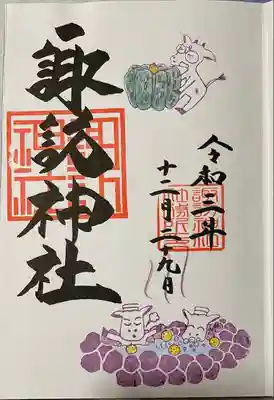 諏訪神社
令和三年
十二月二十九日